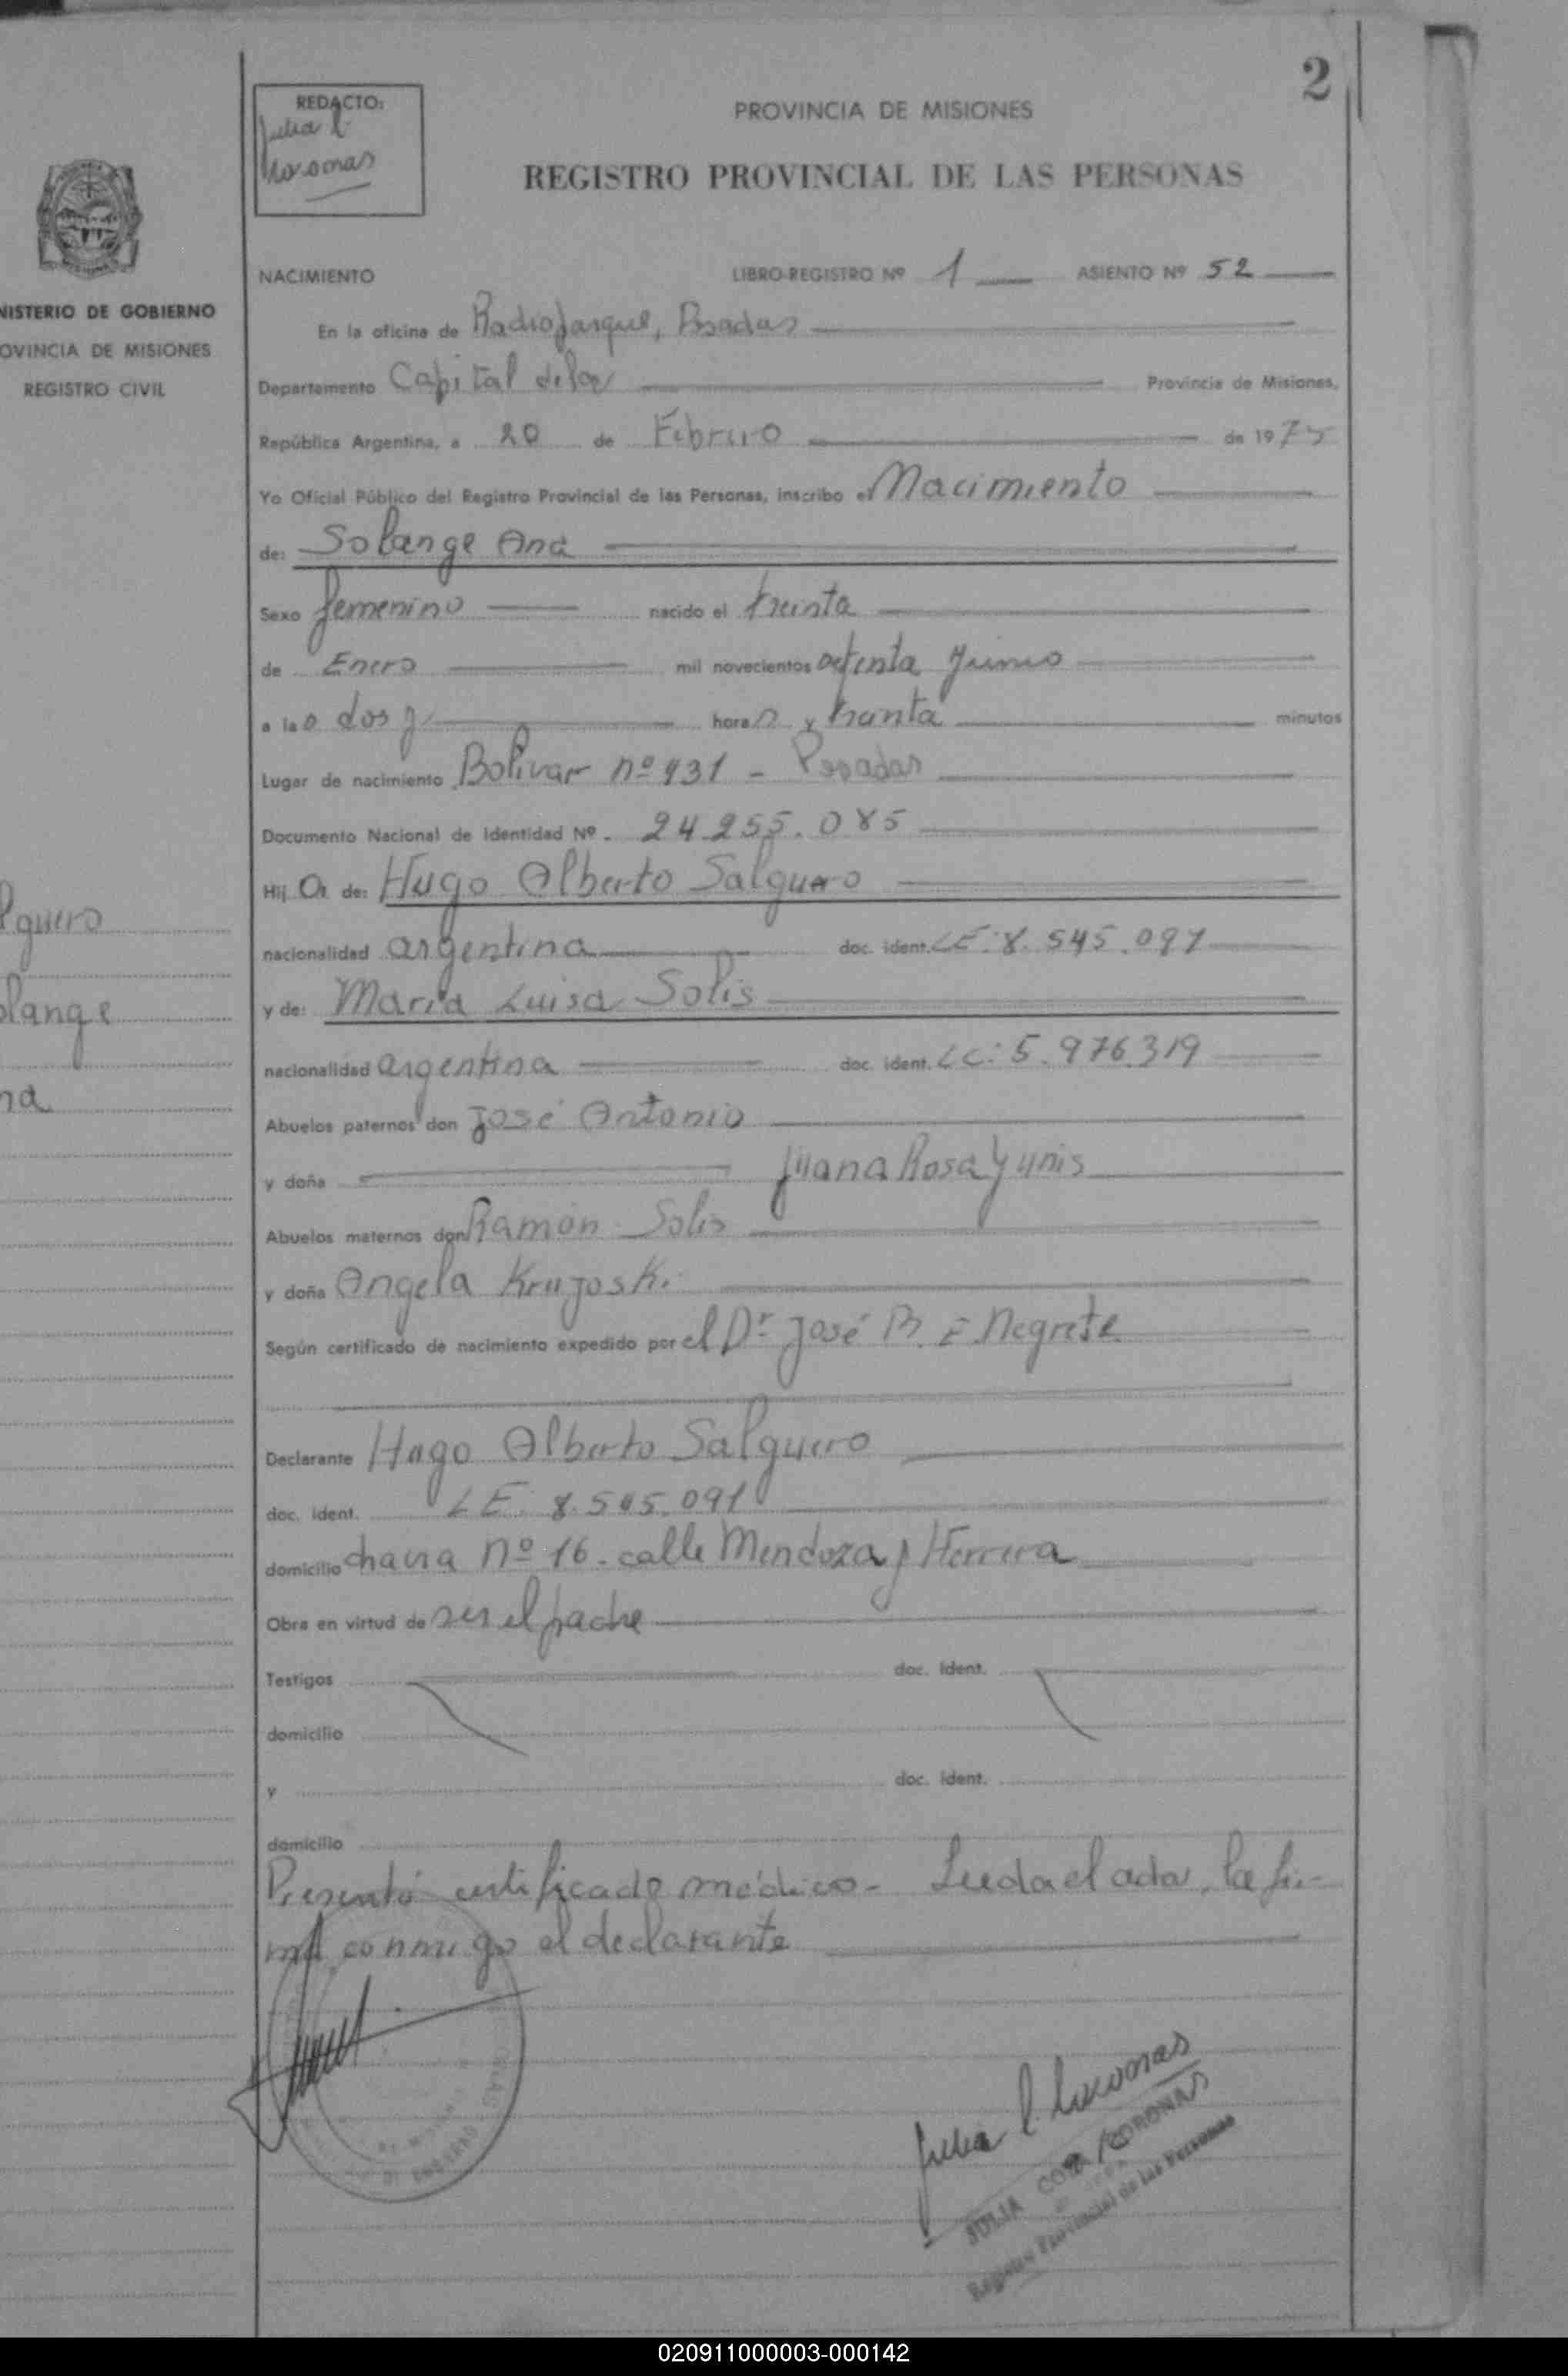 2
REDACTO:
Julia C.
PROVINCIA DE MISIONES
REGISTRO PROVINCIAL DE LAS PERSONAS
NISTERIO DE GOBIERNO
OVINCIA DE MISIONES
REGISTRO CIVIL
lguero
olange
na
NACIMIENTO LIBRO-REGISTRO Nº 1 ASIENTO Nº 52
En la oficina de Radioparque, Posadas
Departamento Capital de la Provincia de Misiones,
República Argentina, a 20 de Febrero de 1975
Yo Oficial Público del Registro Provincial de las Personas, inscribo el Nacimiento
de: Solange Ana
Sexo femenino nacido el treinta
de Enero mil novecientos
a las dos y horas y treinta minutos
Lugar de nacimiento Bolivar nº 931 - Posadas
Documento Nacional de Identidad Nº 24.255.085
Hij a de: Hugo Alberto Salguero
nacionalidad argentina doc. ident. LE: 8.545.091
y de: Maria Luisa Solis
nacionalidad argentina doc. ident. LC: 5.976.319
Abuelos paternos don José Antonio
y doña Juana Rosa Yunis
Abuelos maternos don Ramón Solis
y doña Angela Krujoski
Según certificado de nacimiento expedido por el Dr José E. Negrete
Declarante Hugo Alberto Salguero
doc. ident. LE: 8.545.091
domicilio chacra nº 16. calle Mendoza y Herrera
Obra en virtud de ser el padre
Testigos doc. ident.
domicilio
y doc. ident.
domicilio
Presentó certificado médico - Leida el acta, la fir-
ma conmigo el declarante
JULIA CORONAS
Registro Provincial de las Personas
020911000003-000142